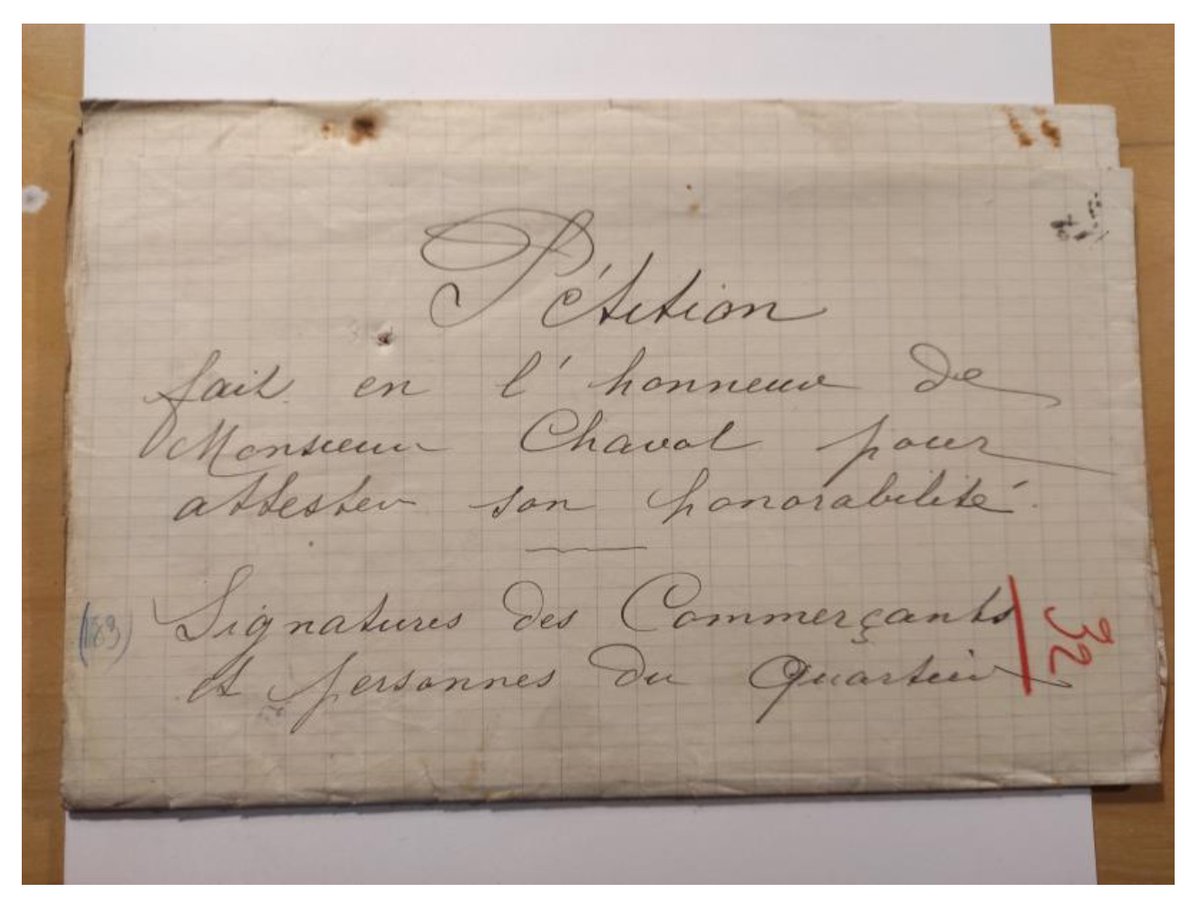 Pétition
fait en l'honneur de
Monsieur Chavol pour
attester son honorabilité.
Signatures des Commerçants
et personnes du Quartier
(183)
32